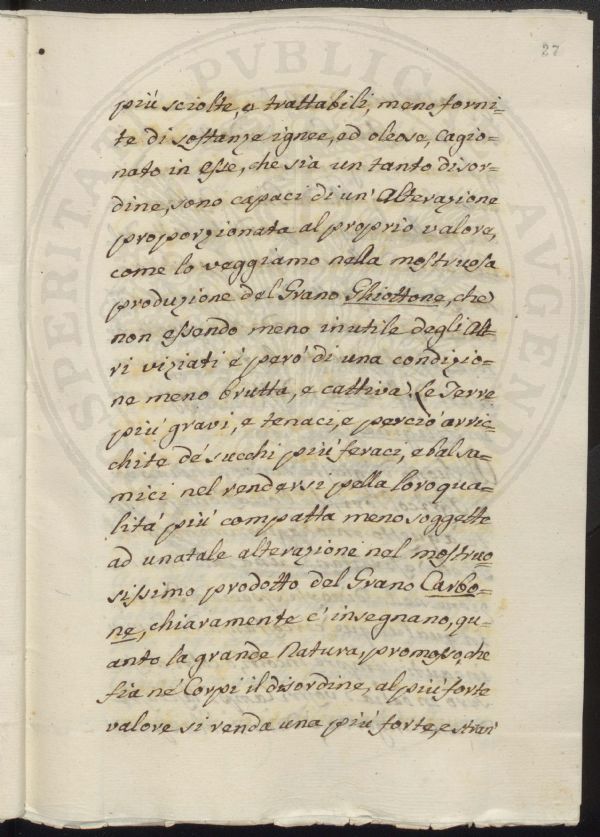 27
più sciolte, e trattabili, meno forni=
te di sostanze ignee, ed oleose, cagio=
nato in esse, che sia un tanto disor=
dine, sono capaci di un' Alterazione
proporzionata al proprio valore,
come lo veggiamo nella mostruosa
produzione del Grano Ghiottone, che
non essendo meno inutile degli Alt=
ri viziati è però di una condizio=
ne meno brutta, e cattiva. Le Terre
più gravi, e tenaci, e perciò arric=
chite de' succhi più feraci, e balsa=
mici nel rendersi pella loro qua=
lità più compatta meno soggette
ad una tale alterazione nel mostruo=
sissimo prodotto del Grano Carbo=
ne, chiaramente c' insegnano, qu=
anto la grande Natura, promosso, che
sia ne' Corpi il disordine, al più forte
valore si renda una più forte, e stran